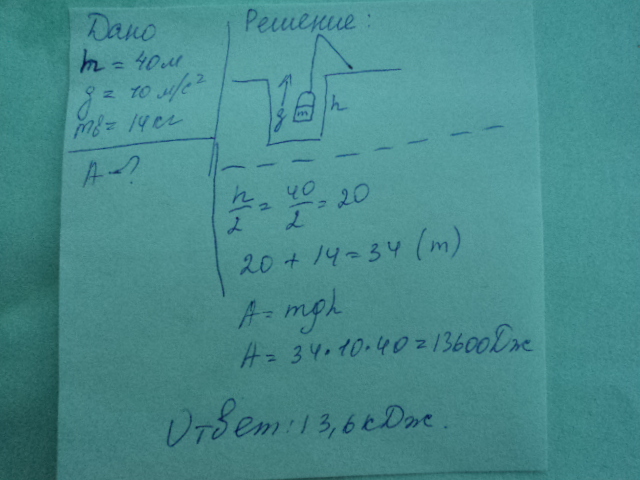 Дано
h = 40м
g = 10 м/с²
mв = 14 кг
A - ?
Решение:
g
m
h
h/2 = 40/2 = 20
20 + 14 = 34 (m)
A = mgh
A = 34 · 10 · 40 = 13600 Дж
Ответ: 13,6 кДж.